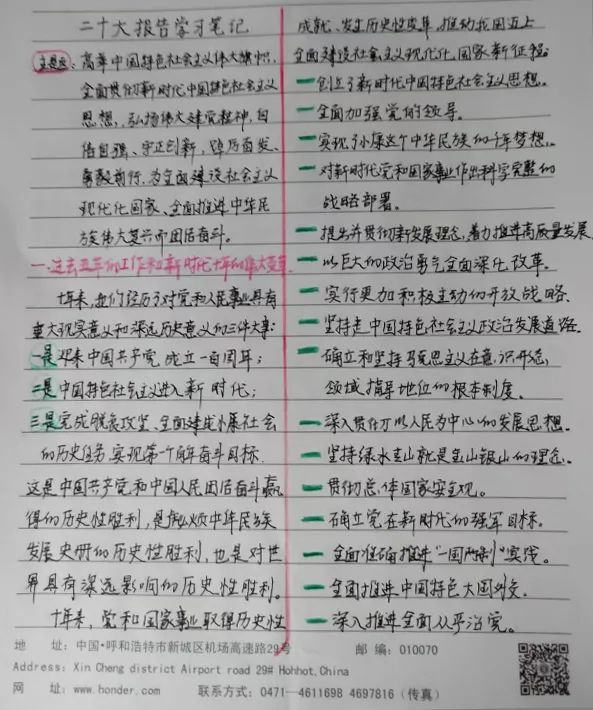 二十大报告学习笔记
主题: 高举中国特色社会主义伟大旗帜,
全面贯彻新时代中国特色社会主义
思想, 弘扬伟大建党精神, 自
信自强、守正创新, 踔厉奋发、
勇毅前行, 为全面建设社会主义
现代化国家、全面推进中华民
族伟大复兴而团结奋斗。
一、过去五年的工作和新时代十年的伟大变革
十年来, 我们经历了对党和人民事业具有
重大现实意义和深远历史意义的三件大事:
一是迎来中国共产党成立一百周年;
二是中国特色社会主义进入新时代;
三是完成脱贫攻坚、全面建成小康社会
的历史任务, 实现第一个百年奋斗目标.
这是中国共产党和中国人民团结奋斗赢
得的历史性胜利, 是彪炳中华民族
发展史册的历史性胜利, 也是对世
界具有深远影响的历史性胜利。
十年来, 党和国家事业取得历史性
成就、发生历史性变革, 推动我国迈上
全面建设社会主义现代化国家新征程:
一 创立了新时代中国特色社会主义思想.
一 全面加强党的领导.
一 实现了小康这个中华民族的千年梦想.
一 对新时代党和国家事业作出科学完整的
战略部署。
一 提出并贯彻新发展理念, 着力推进高质量发展
一 以巨大的政治勇气全面深化改革.
一 实行更加积极主动的开放战略.
一 坚持走中国特色社会主义政治发展道路.
一 确立和坚持马克思主义在意识形态
领域指导地位的根本制度.
一 深入贯彻以人民为中心的发展思想.
一 坚持绿水青山就是金山银山的理念.
一 贯彻总体国家安全观。
一 确立党在新时代的强军目标.
一 全面准确推进“一国两制”实践。
一 全面推进中国特色大国外交.
一 深入推进全面从严治党。
地 址: 中国·呼和浩特市新城区机场高速路29号 邮 编: 010070
Address: Xin Cheng district Airport road 29# Hohhot, China
网 址: www.honder.com 联系方式: 0471—4611698 4697816 (传真)